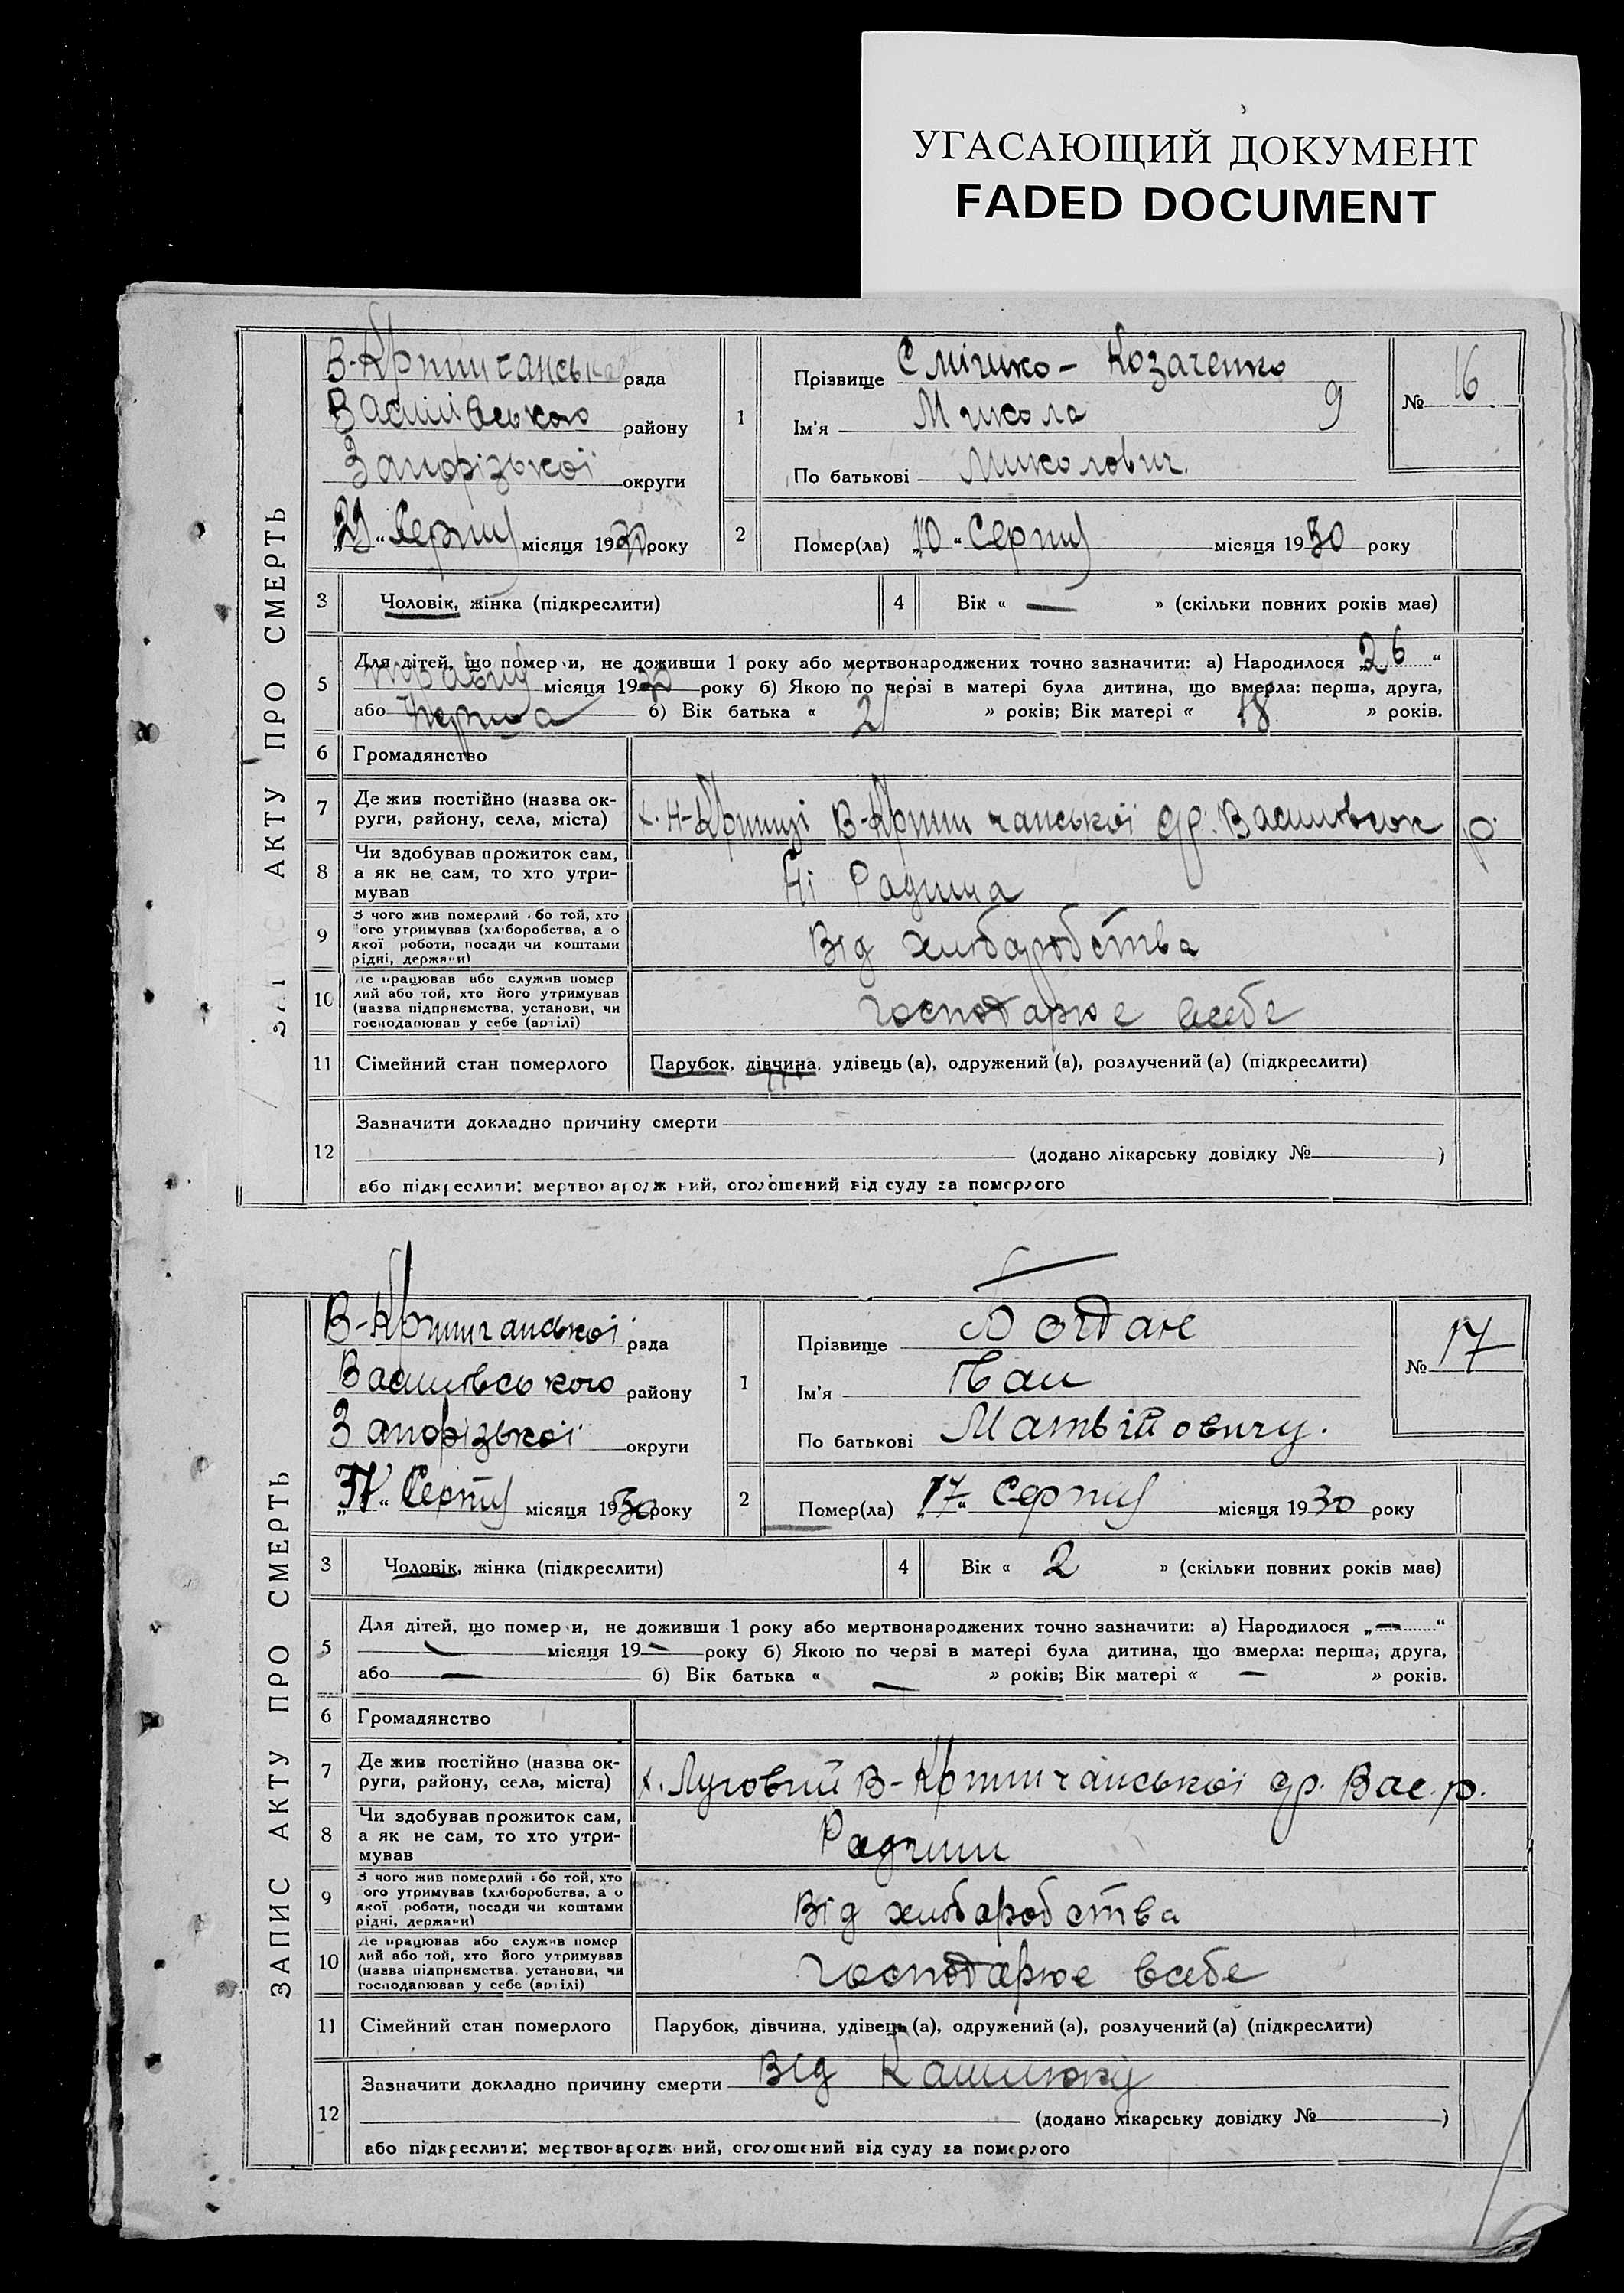 УГАСАЮЩИЙ ДОКУМЕНТ
FADED DOCUMENT
ЗАПИС АКТУ ПРО СМЕРТЬ
В-Крини рада
Василівського району
Запорізької округи
"Серпня місяця 1930 року
1
Прізвище Смішко- Козаченко
Ім'я Микола 9
По батькові Миколович
№ 16
2
Помер(ла) „10" Серпня місяця 1930 року
3 Чоловік, жінка (підкреслити)
4 Вік « — » (скільки повних років має)
5 Для дітей, що померли, не доживши 1 року або мертвонароджених точно зазначити: а) Народилося „26"
місяця 1930 року б) Якою по черзі в матері була дитина, що вмерла: перша, друга,
або Перша б) Вік батька « 21 » років; Вік матері « 18 » років.
6 Громадянство
7 Де жив постійно (назва ок-
руги, району, села, міста)
х. Н-Криниці В-Криничанської др. Василівськ р.
8 Чи здобував прожиток сам,
а як не сам, то хто утри-
мував
Ні Родина
9 З чого жив померлий або той, хто
його утримував (хліборобства, а о
якої роботи, посади чи коштами
рідні, держави)
Від хлібаробства
10 Де працював або служив помер
лий або той, хто його утримував
(назва підприємства, установи, чи
господарював у себе (артілі)
господарює всебе
11 Сімейний стан померлого
Парубок, дівчина, удівець (а), одружений (а), розлучений (а) (підкреслити)
12 Зазначити докладно причину смерти
(додано лікарську довідку № )
або підкреслити: мертвонароджений, оголошений від суду за померлого
ЗАПИС АКТУ ПРО СМЕРТЬ
В-Криничанської рада
Василівського району
Запорізької округи
" Серпня місяця 1930 року
1
Прізвище Богдан
Ім'я Іван
По батькові Матвійовичу.
№ 17
2
Помер(ла) „17" Серпня місяця 1930 року
3 Чоловік, жінка (підкреслити)
4 Вік « 2 » (скільки повних років має)
5 Для дітей, що померли, не доживши 1 року або мертвонароджених точно зазначити: а) Народилося „—"
— місяця 19— року б) Якою по черзі в матері була дитина, що вмерла: перша, друга,
або — б) Вік батька « — » років; Вік матері « — » років.
6 Громадянство
7 Де жив постійно (назва ок-
руги, району, села, міста)
х. Луговий В-Криничанської др. Вас. р.
8 Чи здобував прожиток сам,
а як не сам, то хто утри-
мував
Родини
9 З чого жив померлий або той, хто
його утримував (хліборобства, а о
якої роботи, посади чи коштами
рідні, держави)
Від хлібаробства
10 Де працював або служив помер
лий або той, хто його утримував
(назва підприємства, установи, чи
господарював у себе (артілі)
господарює всебе
11 Сімейний стан померлого
Парубок, дівчина, удівець (а), одружений (а), розлучений (а) (підкреслити)
12 Зазначити докладно причину смерти Від Кашлюку
(додано лікарську довідку № )
або підкреслити: мертвонароджений, оголошений від суду за померлого